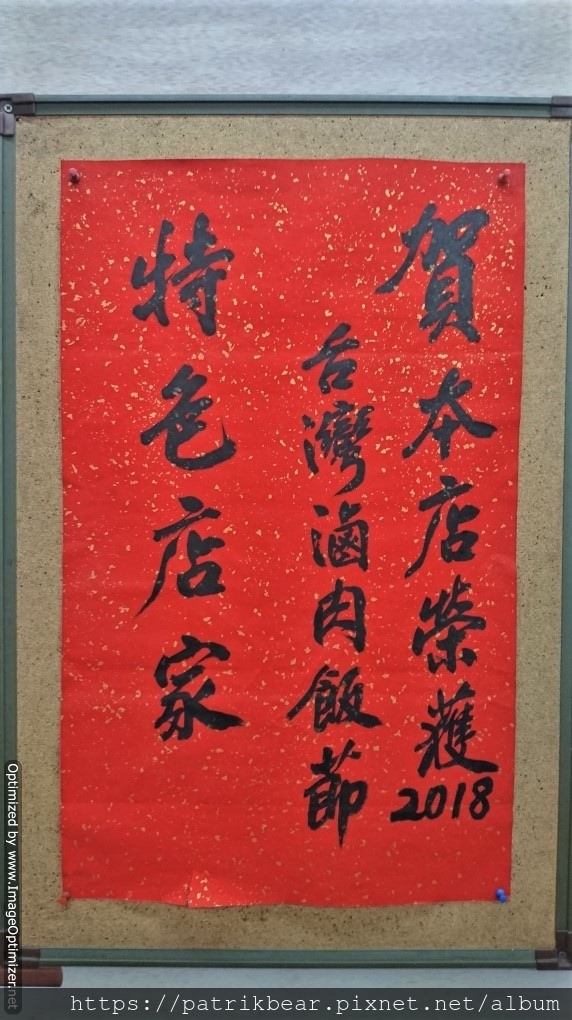 賀本店榮獲2018
台灣滷肉飯節
特色店家
Optimized by www.ImageOptimizer.net
https://patrikbear.pixnet.net/album